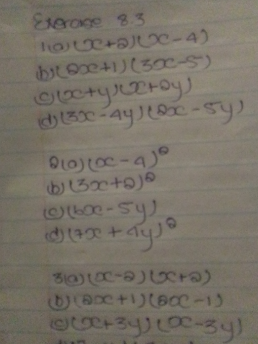 Exercise 8.3
1(a)(x+2)(x-4)
b)(2x+1)(3x-5)
c)(x+y)(x+2y)
d)(3x-4y)(2x-5y)
2(a)(x-4)²
b)(3x+2)²
c)(6x-5y)
d)(7x+4y)²
3(a)(x-2)(x+2)
b)(2x+1)(2x-1)
c)(x+3y)(x-3y)